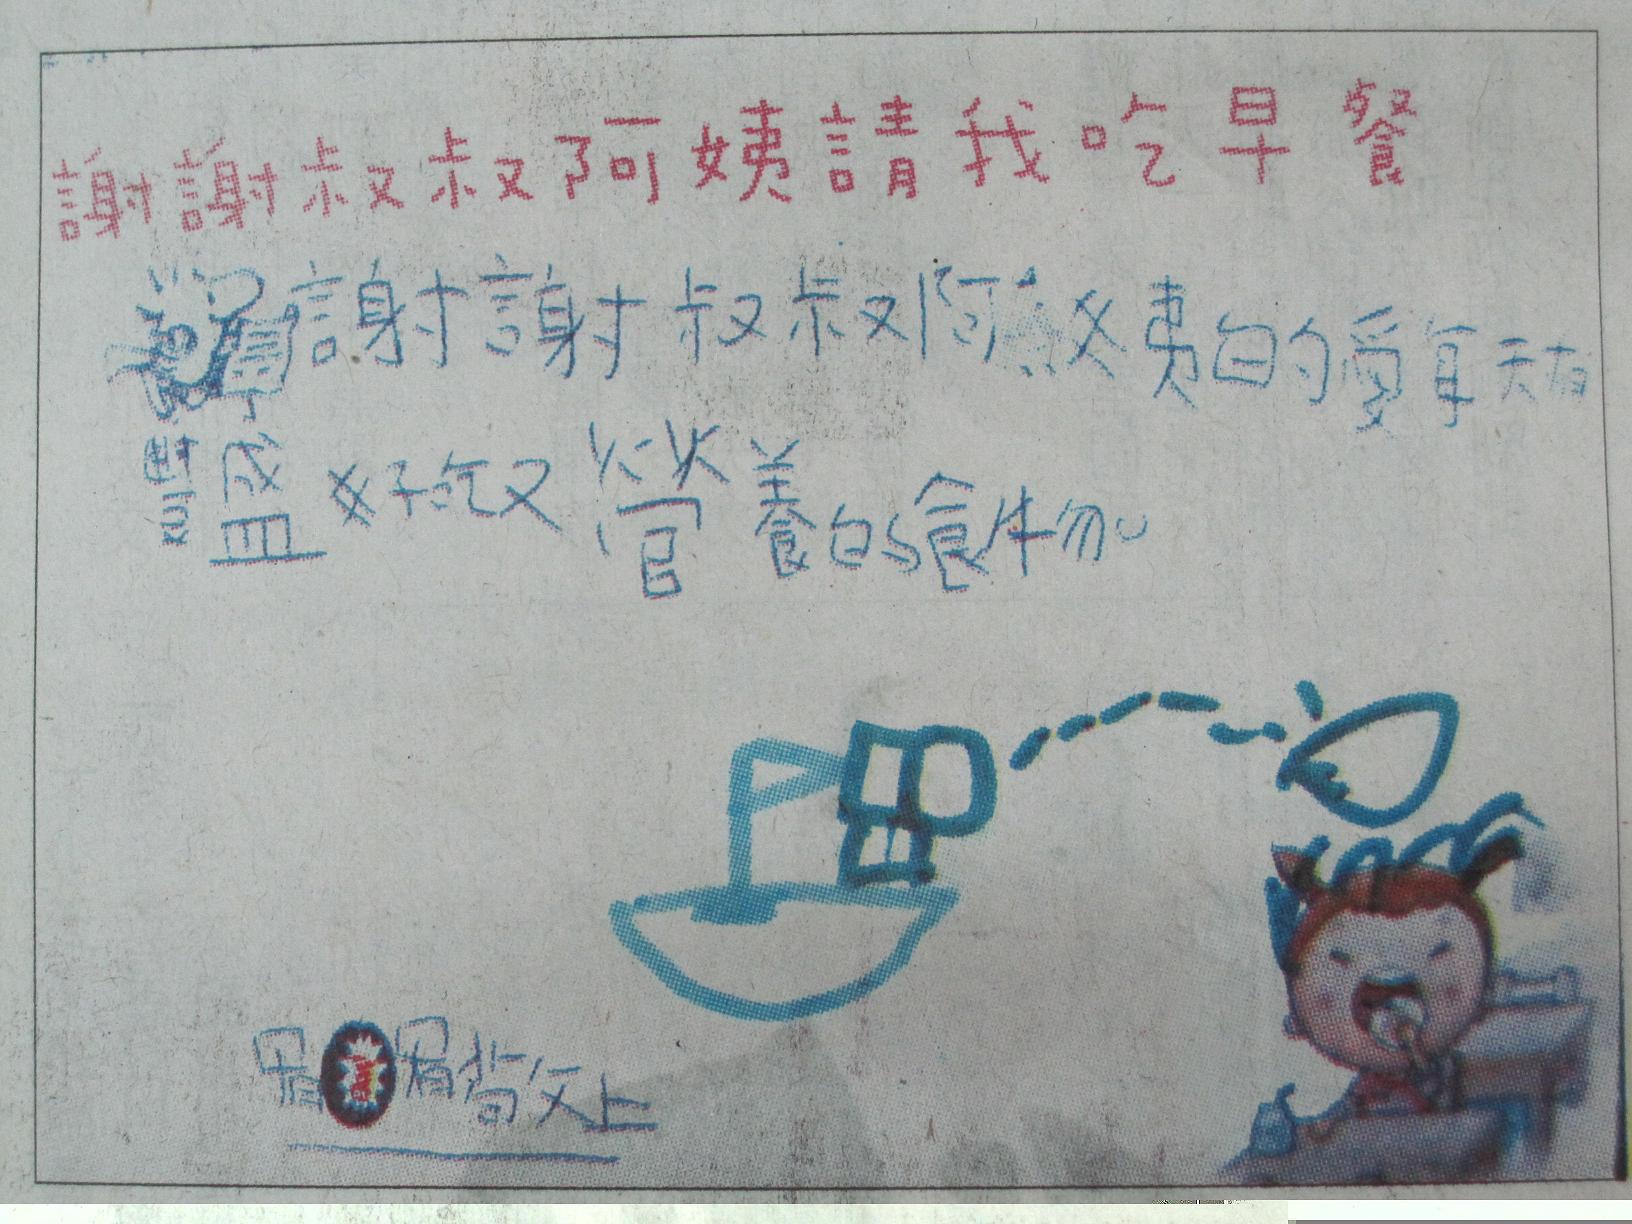 謝謝叔叔阿姨請我吃早餐
謝謝叔叔阿姨的愛每天有
豐盛好吃又營養的食物。
敬上